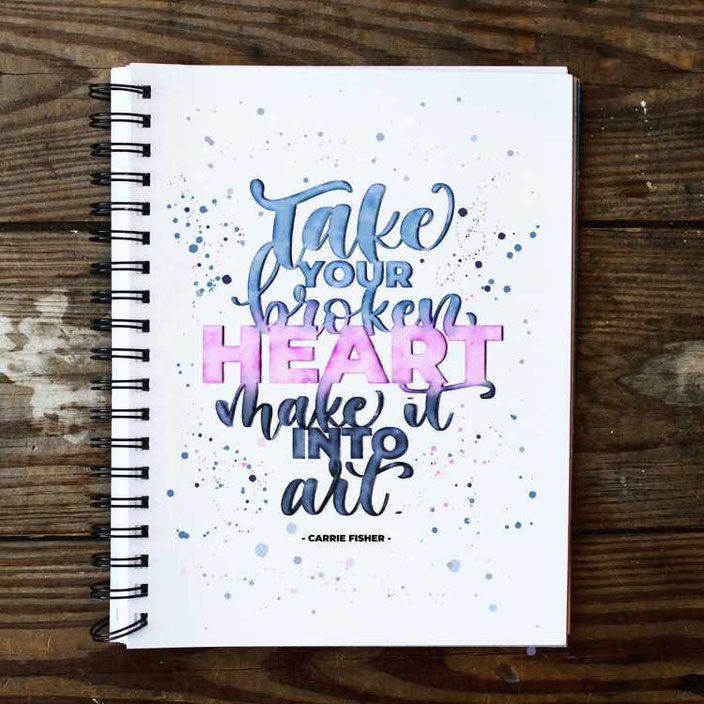 Take
YOUR
broken
HEART
make it
INTO
art
- CARRIE FISHER -